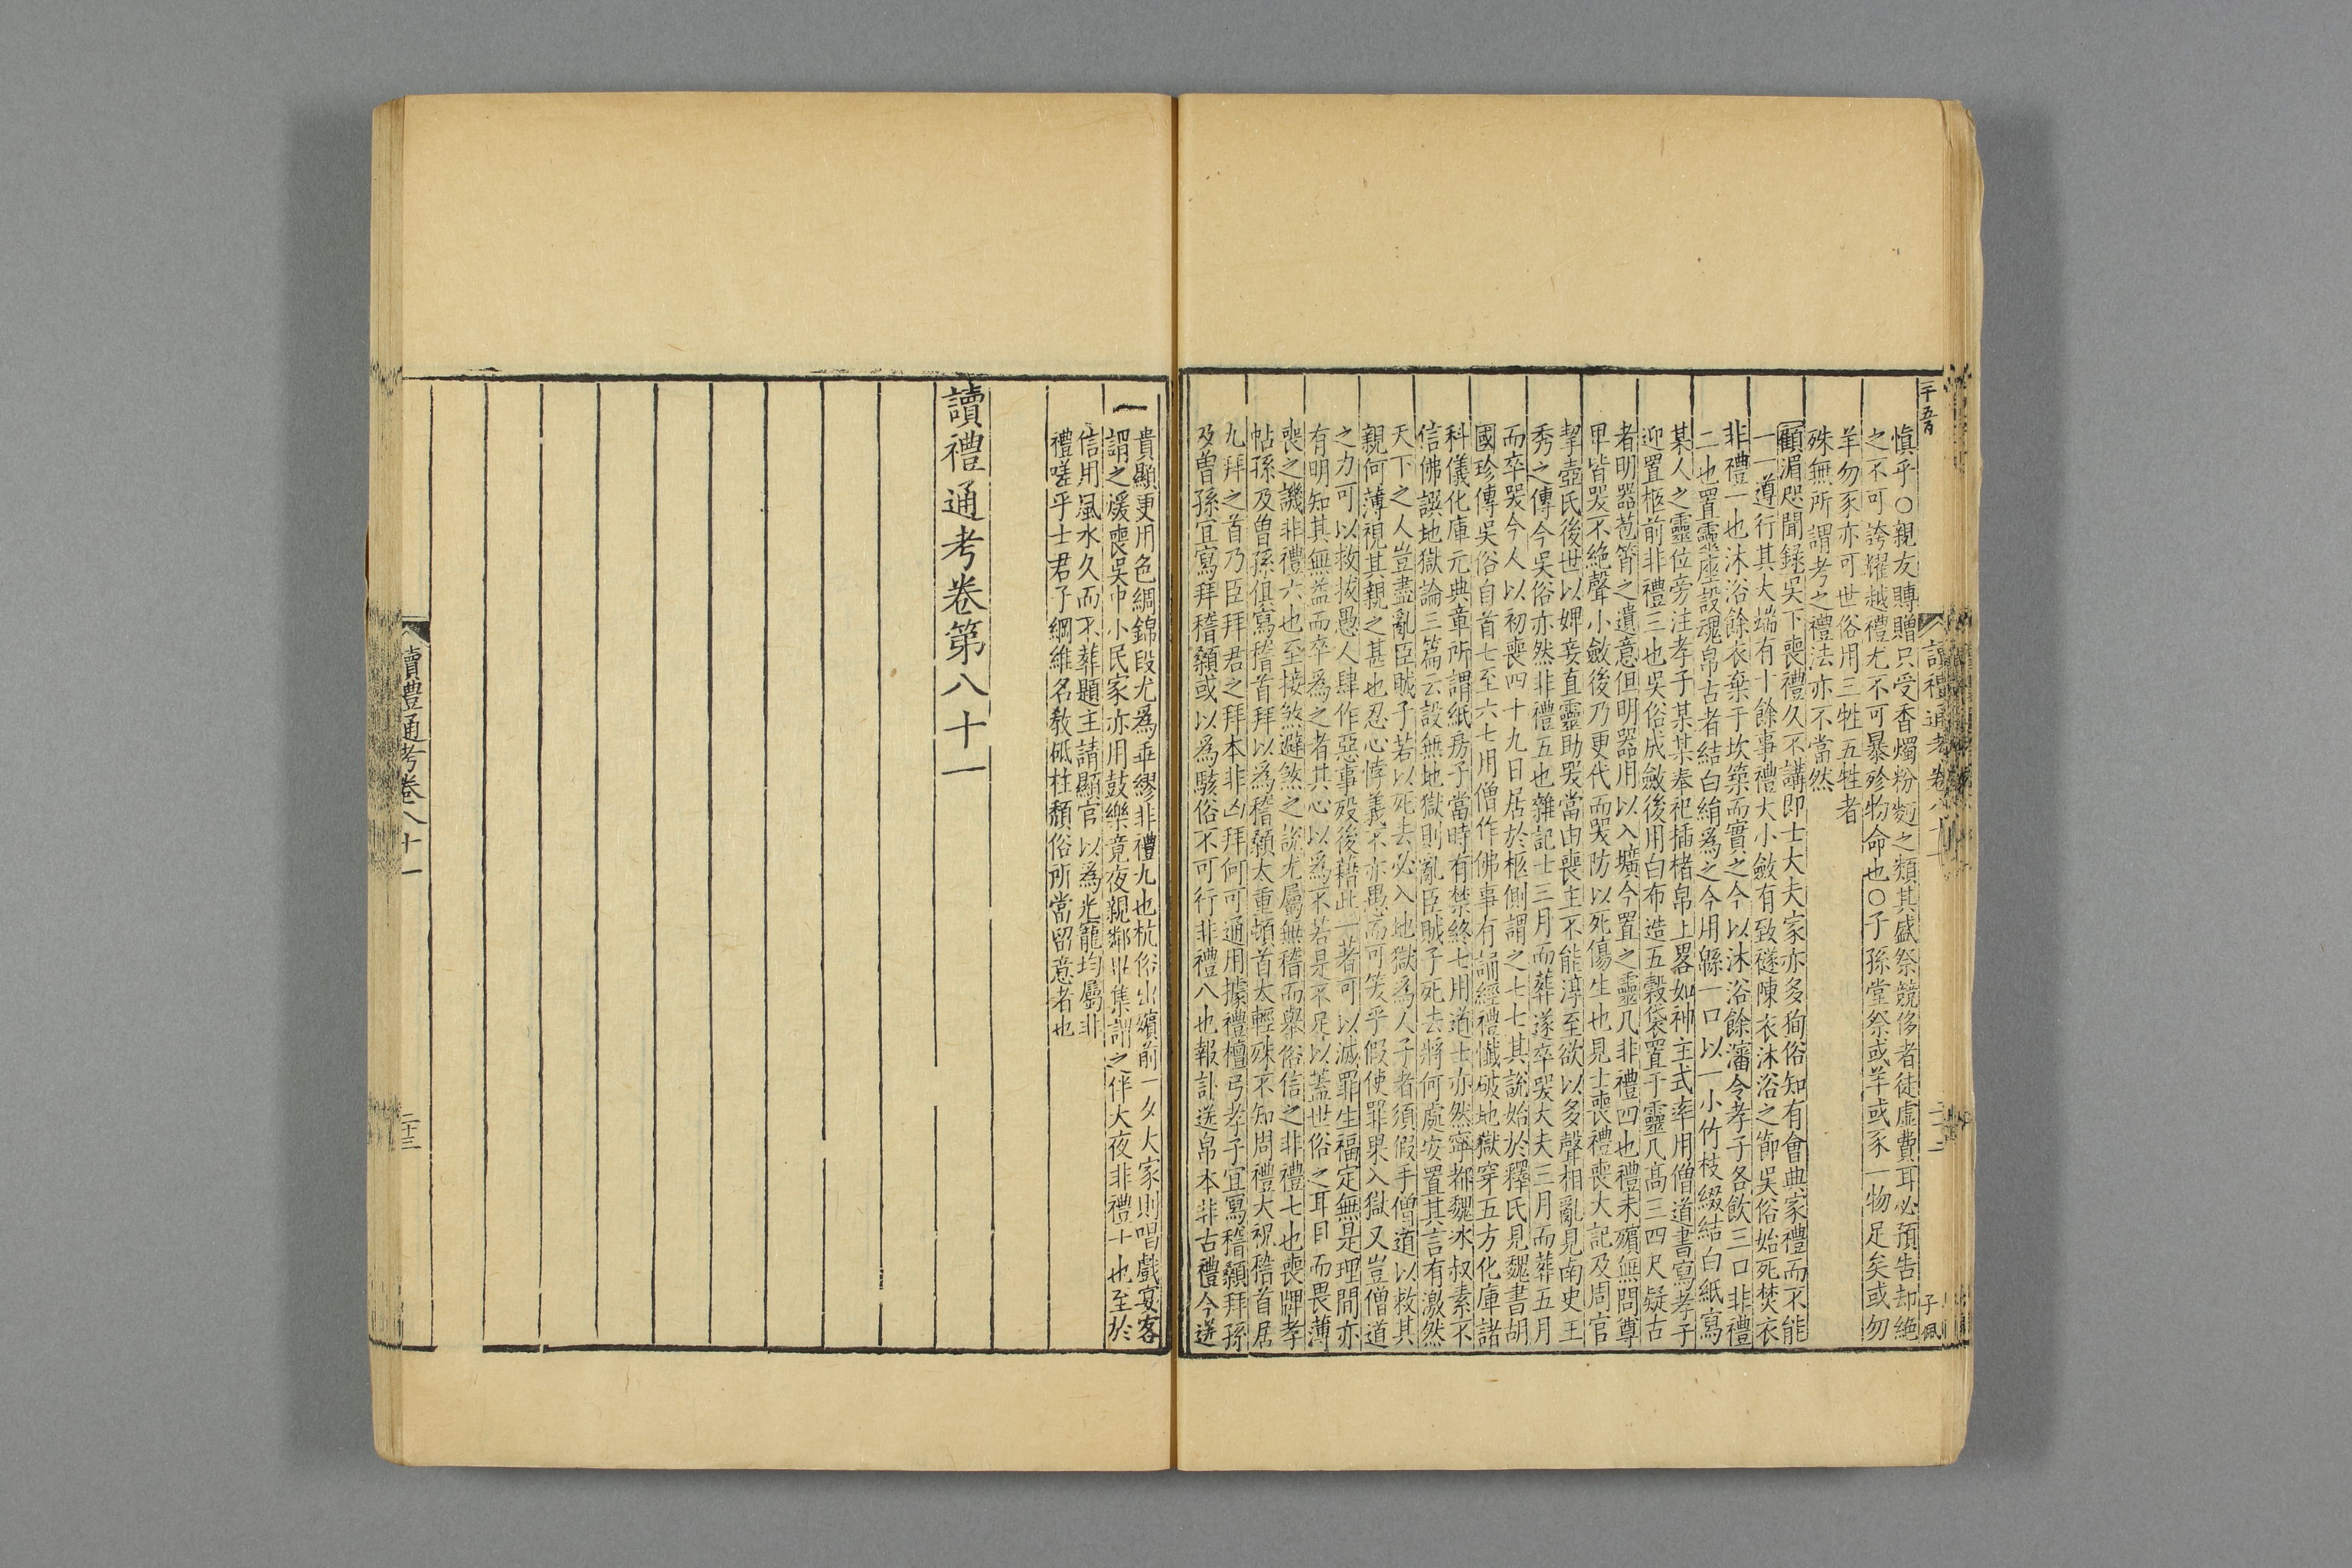 慎乎〇親友賻贈只受香燭粉麪之類其盛祭競侈者徒虛費耳必預告却絕
之不可誇耀越禮尤不可暴殄物命也〇子孫堂祭或羊或豕一物足矣或勿
羊勿豕亦可世俗用三牲五牲者
殊無所謂考之禮法亦不當然
顧湄咫聞録吳下喪禮久不講即士大夫家亦多徇俗知有會典家禮而不能
一一遵行其大端有十餘事禮大小斂有致襚陳衣沐浴之節吳俗始死焚衣
非禮一也沐浴餘衣棄于坎築而實之今以沐浴餘瀋令孝子各飲三口非禮
二也置靈座設魂帛古者結白絹爲之今用緜一口以一小竹枝綴結白紙寫
某人之靈位旁注孝子某某奉祀插楮帛上畧如神主式率用僧道書寫孝子
迎置柩前非禮三也吳俗成斂後用白布造五穀袋置于靈几高三四尺疑古
者明器苞筲之遺意但明器用以入壙今置之靈几非禮四也禮未殯無問尊
卑皆哭不絕聲小斂後乃更代而哭防以死傷生也見士喪禮喪大記及周官
挈壺氏後世以婢妾直靈助哭當由喪主不能淳至欲以多聲相亂見南史王
秀之傳今吳俗亦然非禮五也雜記士三月而葬遂卒哭大夫三月而葬五月
而卒哭今人以初喪四十九日居於柩側謂之七七其說始於釋氏見魏書胡
國珍傳吳俗自首七至六七用僧作佛事有誦經禮懺破地獄穿五方化庫諸
科儀化庫元典章所謂紙房子當時有禁終七用道士亦然寧都魏冰叔素不
信佛譔地獄論三篇云設無地獄則亂臣賊子死去將何處安置其言有激然
天下之人豈盡亂臣賊子若以死去必入地獄爲人子者須假手僧道以救其
親何薄視其親之甚也忍心悖義不亦愚而可笑乎假使罪果入獄又豈僧道
之力可以救拔愚人肆作惡事歿後藉此一著可以滅罪生福定無是理間亦
有明知其無益而卒爲之者其心以爲不若是不足以蓋世俗之耳目而畏薄
喪之譏非禮六也至接煞避煞之說尤屬無稽而舉俗信之非禮七也喪牌孝
帖孫及曾孫俱寫稽首拜以爲稽顙太重頓首太輕殊不知周禮大祝稽首居
九拜之首乃臣拜君之拜本非凶拜何可通用據禮檀弓孝子宜寫稽顙拜孫
及曾孫宜寫拜稽顙或以爲駭俗不可行非禮八也報訃送帛本非古禮今送
貴顯更用色綢錦段尤爲乖繆非禮九也杭俗出殯前一夕大家則唱戲宴客
謂之煖喪吳中小民家亦用鼓樂竟夜親鄰畢集謂之伴大夜非禮十也至於
信用風水久而不葬題主請顯官以爲光寵均屬非
禮嗟乎士君子綱維名敎砥柱頽俗所當留意者也
讀禮通考卷第八十一
讀禮通考卷八十一
二十三